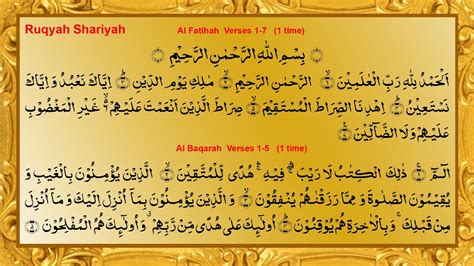 Ruqyah Shariyah
Al Fatihah Verses 1-7 (1 time)
بِسْمِ اللهِ الرَّحْمٰنِ الرَّحِيْمِ
اَلْحَمْدُ لِلهِ رَبِّ الْعٰلَمِيْنَ ۝ الرَّحْمٰنِ الرَّحِيْمِ ۝ مٰلِكِ يَوْمِ الدِّيْنِ ۝ اِيَّاكَ نَعْبُدُ وَ اِيَّاكَ
نَسْتَعِيْنُ ۝ اِهْدِنَا الصِّرَاطَ الْمُسْتَقِيْمَ ۝ صِرَاطَ الَّذِيْنَ اَنْعَمْتَ عَلَيْهِمْ ۝ غَيْرِ الْمَغْضُوْبِ
عَلَيْهِمْ وَلَا الضَّآلِّيْنَ ۝
Al Baqarah Verses 1-5 (1 time)
الٓمّٓ ۝ ذٰلِكَ الْكِتٰبُ لَا رَيْبَ ۛ فِيْهِ ۛ هُدًى لِّلْمُتَّقِيْنَ ۝ الَّذِيْنَ يُؤْمِنُوْنَ بِالْغَيْبِ وَ
يُقِيْمُوْنَ الصَّلٰوةَ وَ مِمَّا رَزَقْنٰهُمْ يُنْفِقُوْنَ ۝ وَ الَّذِيْنَ يُؤْمِنُوْنَ بِمَآ اُنْزِلَ اِلَيْكَ وَ مَآ اُنْزِلَ
مِنْ قَبْلِكَ ۚ وَ بِالْاٰخِرَةِ هُمْ يُوْقِنُوْنَ ۝ اُولٰٓئِكَ عَلٰى هُدًى مِّنْ رَّبِّهِمْ ۙ وَ اُولٰٓئِكَ هُمُ الْمُفْلِحُوْنَ ۝